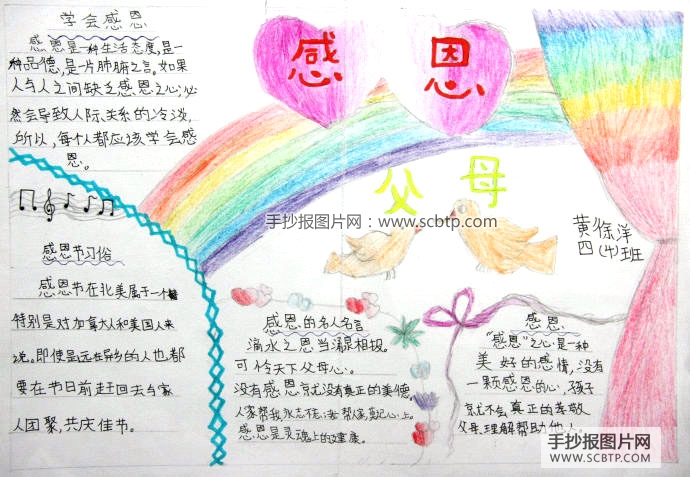 学会感恩
感恩是一种生活态度,是一
种品德,是一片肺腑之言。如果
人与人之间缺乏感恩之心,必
然会导致人际关系的冷淡,
所以,每个人都应该学会感
恩。
感 恩
父 母
手抄报图片网:www.scbtp.com
黄徐洋
四(4)班
感恩节习俗
感恩节在北美属于一个
特别是对加拿大和美国人来
说。即使是远在异乡的人也都
要在节日前赶回去与家
人团聚,共庆佳节。
感恩的名人名言
滴水之恩当涌泉相报。
可怜天下父母心。
没有感恩就没有真正的美德。
人家帮我永志不忘;我帮人家莫记心上。
感恩是灵魂上的健康。
感恩
“感恩”之心是一种
美好的感情,没有
一颗感恩的心,孩子
就不会真正的孝敬
父母、理解帮助他人。
手抄报图片网
WWW.SCBTP.COM